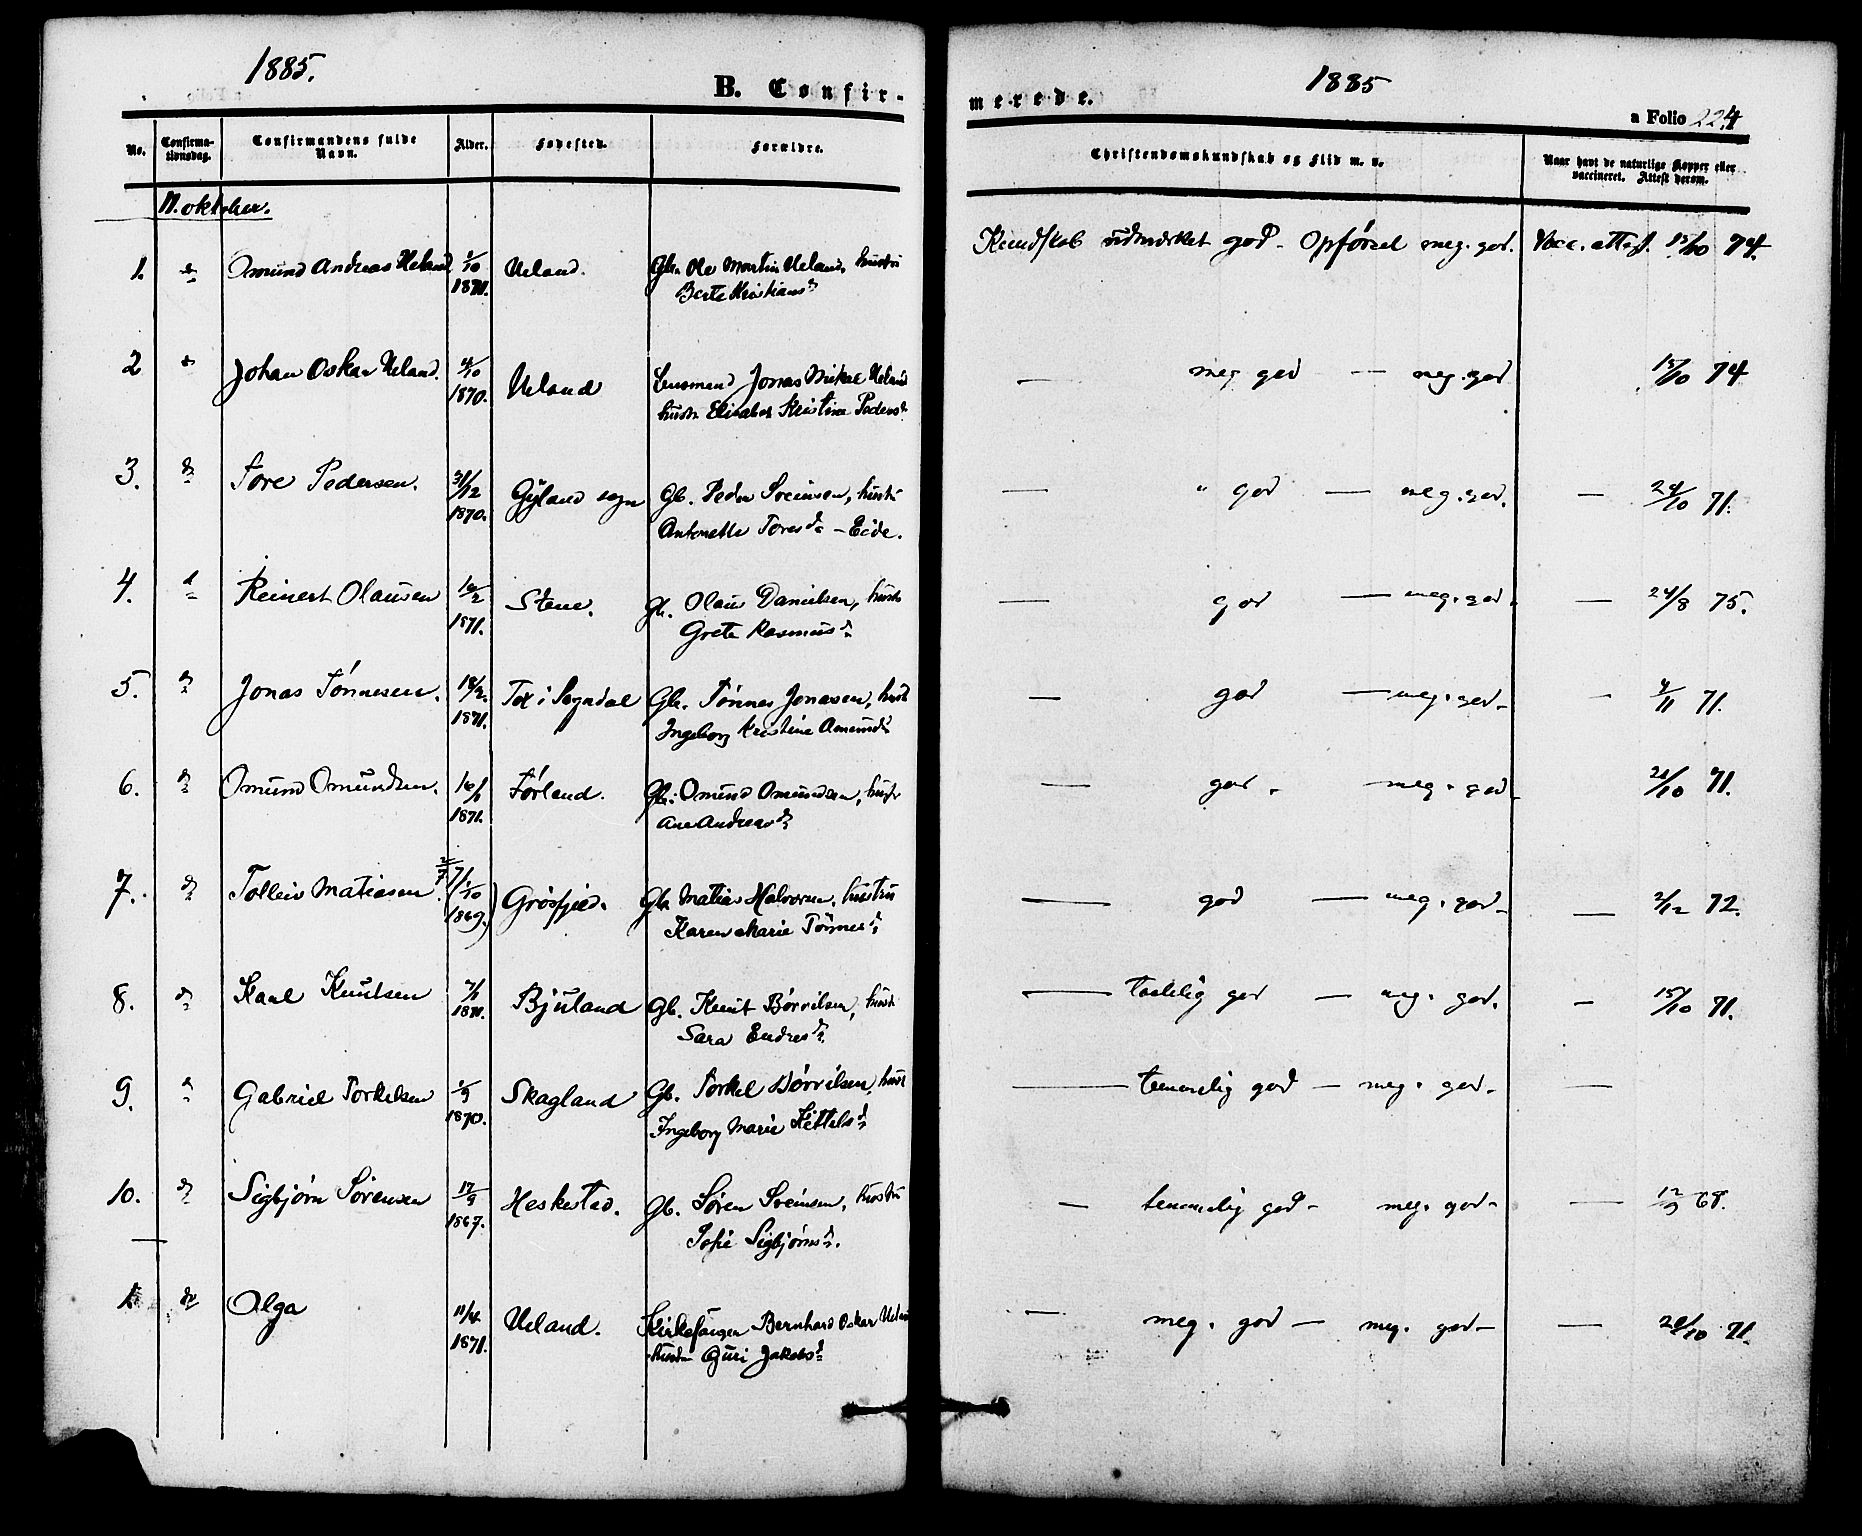 1885.
B. Confir-
No.
Confirma-
tionsdag.
Confirmandens fulde
Navn.
Alder.
Fødested.
Forældre.
11. oktober.
1. do Omund Andreas Ueland 1/10 Ueland. Gbr. Ole Martin Ueland, hustru
Berte Kristiansd.
2 do Johan Oskar Ueland. 4/10 1870. Ueland Lensmand Jonas Mikal Ueland
hustr. Elisabet Kristine Pedersd.
3. do Tore Pedersen. 31/12 1870. Gyland sogn Gb. Peder Sveinsen, hustr
Antonette Toresd. – Eide.
4. d Reinert Olausen 16/2 1871. Stene. Gb. Olaus Danielsen, hustr
Grete Rasmusd.
5. do Jonas Tónnesen. 18/2 1871. Tox i Sogndal Gb. Tónnes Jonasen, hust
Ingeborg Kristine Omundsd.
6. do Omund Omundsen. 16/1 1871. Førland. Gb. Omund Omundsen, hustr
Ane Andreasd.
7. do Tolleiv Matiasen 1/10 1869. Grøsfjeld. Gb. Matias Halvorsen, hustru
Karen Marie Tønnesd.
8. do Karl Knutsen 7/1 1871. Bjuland Gb. Knut Børrilsen, hustr
Sara Endresd.
9. d Gabriel Torkelsen 1/9 1870. Skagland Gb. Torkel Børrilsen, hust
Ingeborg Marie Kittelsd.
10. do Sigbjørn Sørensen 17/9 1867. Heskestad. Gb. Søren Sveinsen, hustru
Sofie Sigbjørnsd.
1. do Olga 11/4 1871. Ueland. Kirkesanger Bernhard Oskar Ueland
hustr Guri Jakobsd.
1885
merede.
a Folio 224
Christendomskundskab og Flid m. v.
Naar havt de naturlige Kopper eller
vaccineret. Attest derom.
Kundskab udmærket god – Opførsel meg. god. Vacc. attest. 15/10 74.
— meg god — meg. god 15/10 74
— " god — meg. god. — 24/10 71.
— god — meg. god. — 24/8 75.
— god — meg. god – — 4/11 71.
— god. meg. god – 21/10 71.
— god — meg. god – — 2/12 72.
— taalelig god — meg. god. — 15/10 71.
— temmelig god — meg. god – —
— temmelig god – meg. god – — 12/9 68.
— meg. god — meg. god – — 20/10 71.